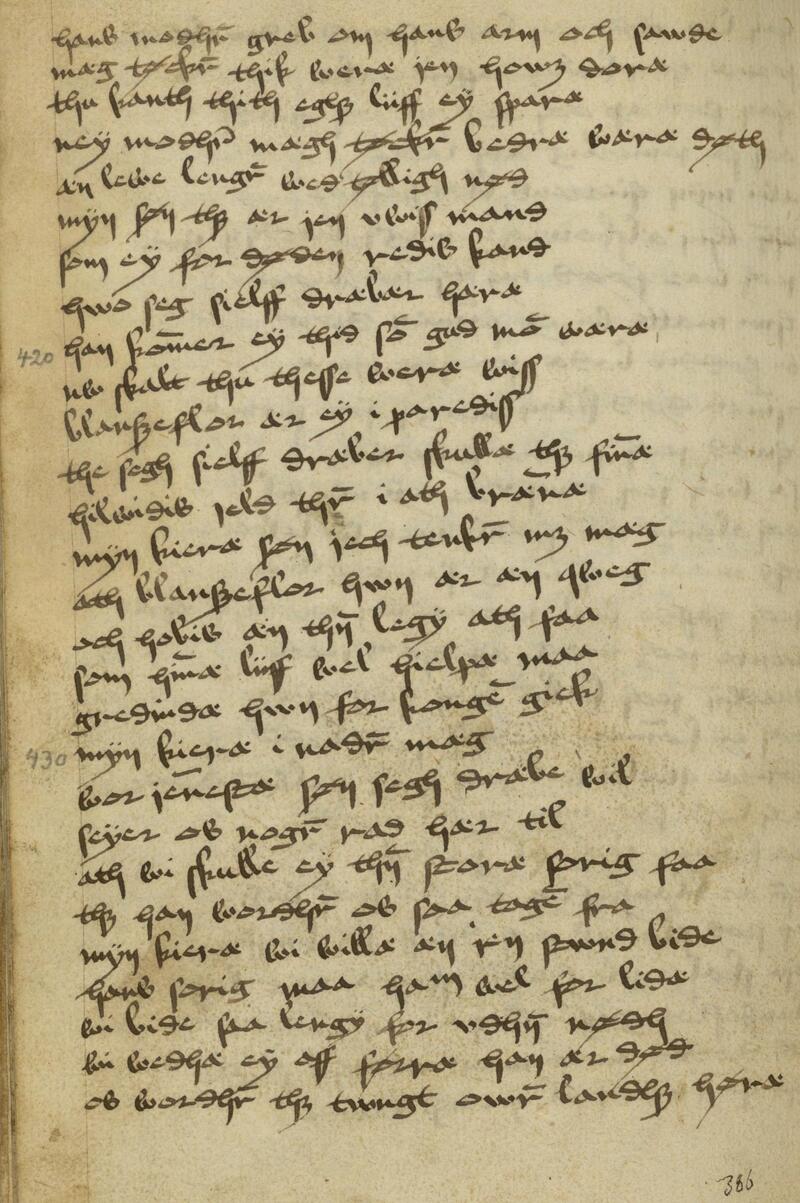 hans modhr̃ greb om hans arm och sawde
mæg tøckr̃ thik weræ jen howꝫ doræ
thu kanth thith eghꝫ lijff ey sparæ
ney modhr̃ mægh tøckr̃ bedræ wæræ døth
æn lewe lengr̃ wed tølligh nød
myn søn thꝫ ær jen vwiss mand
som ey for døden redis kand
hwo seg sielff dræbær hæræ
420 han kom̄er ey thid so᷃ gud mo᷃ wæræ
nw skalt thu thesse weræ wiss
blanszeflor ær ey i paradiss
the segh sielff dræber skullæ thꝫ fin̄æ
hilwidis jeld thr̃ i ath bræn̄æ
myn kieræ søn jech tenkr̃ mꝫ mæg
ath blanszeflor hwn ær æn qweg
och hobis æn thn̄ legy ath faa
som hin̄æ lijff wel hielpæ maa
gredindæ hwn for konge᷃ gick
430 myn kieræ i nadr̃ mæg
wor jen̄estæ søn segh dræbe wil
seyer os nogr̃ rad hær til
ath wi skulle ey thn̄ storæ sorig faa
thꝫ han wordhr̃ os saa tage᷃ fra
myn kieræ wi willæ æn jen stwnd bide
hans sorig maa ham wel for lidæ
wi bide saa lengy for vdhn̄ nødh
wi wedhæ ey aff førræ han ær død
os wordhr̃ thꝫ twngt owr̃ landhꝫ høræ
386